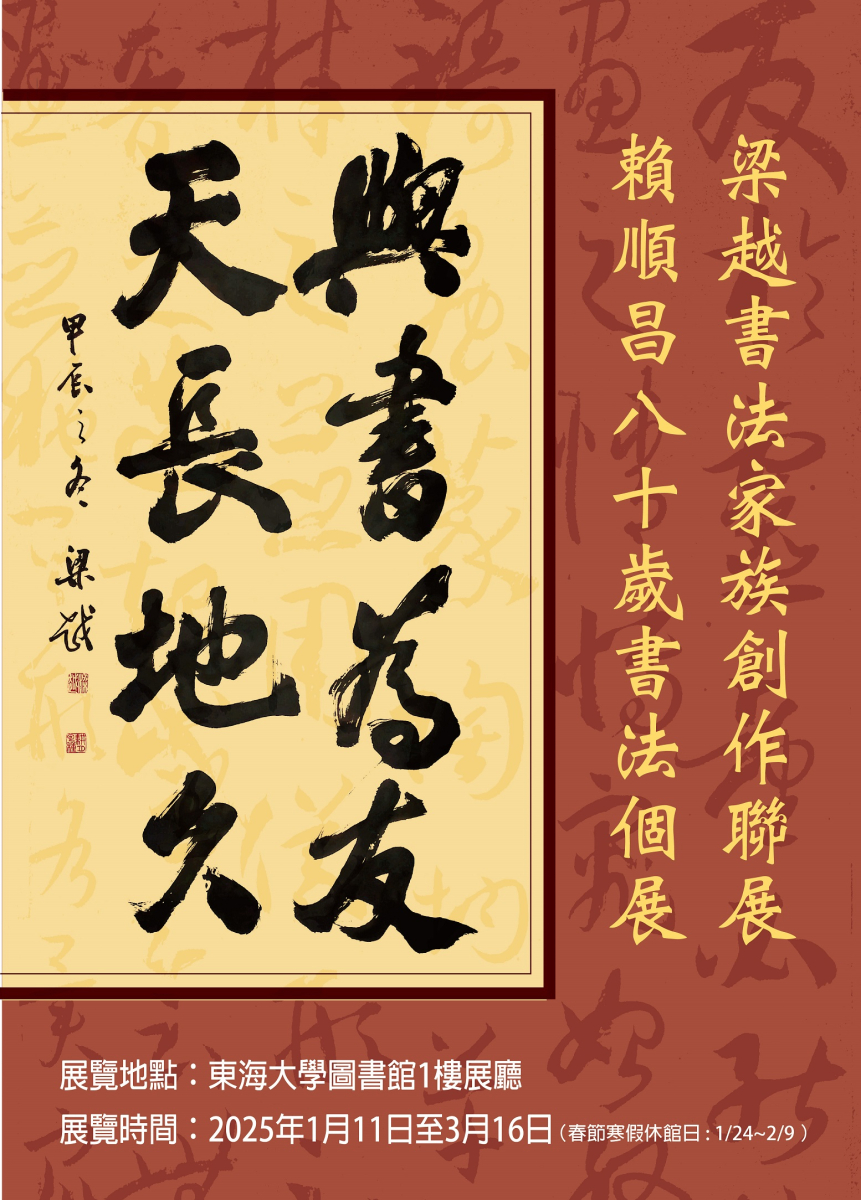 梁越書法家族創作聯展
賴順昌八十歲書法個展
與書為友
天長地久
甲辰之冬 梁越
展覽地點：東海大學圖書館1樓展廳
展覽時間：2025年1月11日至3月16日（春節寒假休館日：1/24~2/9）